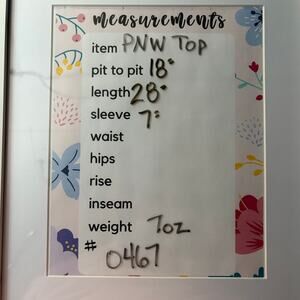 measurements
item PNW TOP
pit to pit 18"
length 28"
sleeve 7"
waist
hips
rise
inseam
weight 7oz
# 0467